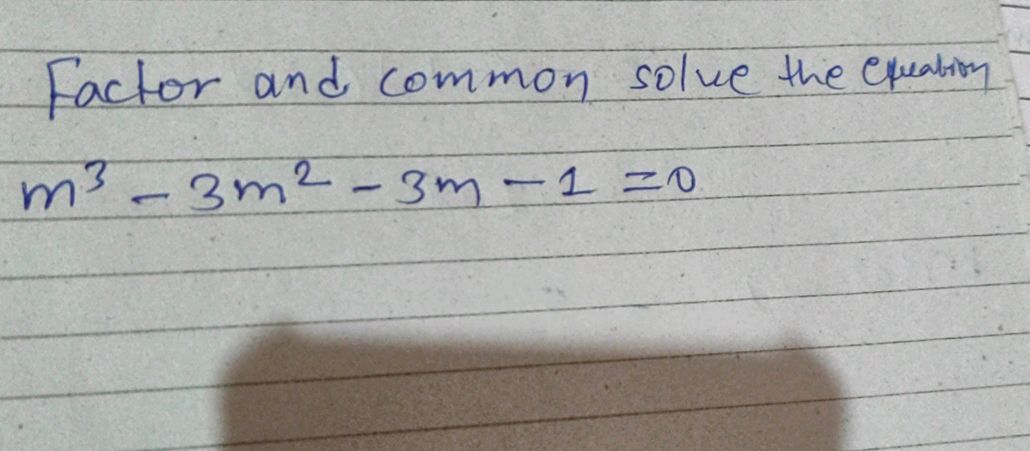 Factor and common solve the equation
m³ - 3m² - 3m - 1 = 0